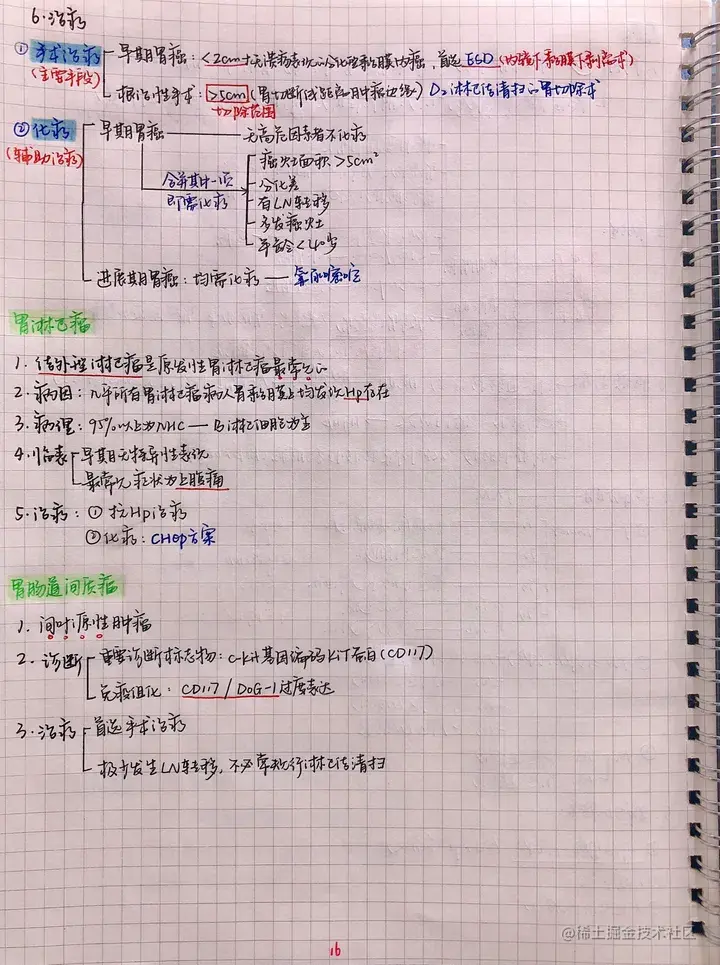 6.治疗
①手术治疗 早期胃癌:<2cm+无溃疡表现的分化型黏膜内癌,首选ESD(内镜下黏膜下剥离术)
(主要手段) 根治性手术:>5cm(胃切断线距离肿瘤边缘) D₂淋巴结清扫的胃切除术
切除范围
②化疗 早期胃癌 无高危因素者不化疗
(辅助治疗) 癌灶面积>5cm²
合并其中一项 分化差
即需化疗 有LN转移
多发癌灶
年龄<40岁
进展期胃癌:均需化疗——氟尿嘧啶
胃淋巴瘤
1.结外型淋巴瘤是原发性胃淋巴瘤最常见的
2.病因:几乎所有胃淋巴瘤病人胃黏膜上均发现Hp存在
3.病理:95%以上为NHC—B淋巴细胞为主
4.临表 早期无特异性表现
最常见症状为上腹痛
5.治疗:①抗Hp治疗
②化疗:CHOP方案
胃肠道间质瘤
1.间叶源性肿瘤
2.诊断 重要诊断标志物:c-kit基因编码KIT蛋白(CD117)
免疫组化:CD117/DoG-1过度表达
3.治疗 首选手术治疗
极少发生LN转移,不必常规行淋巴结清扫
16
@稀土掘金技术社区